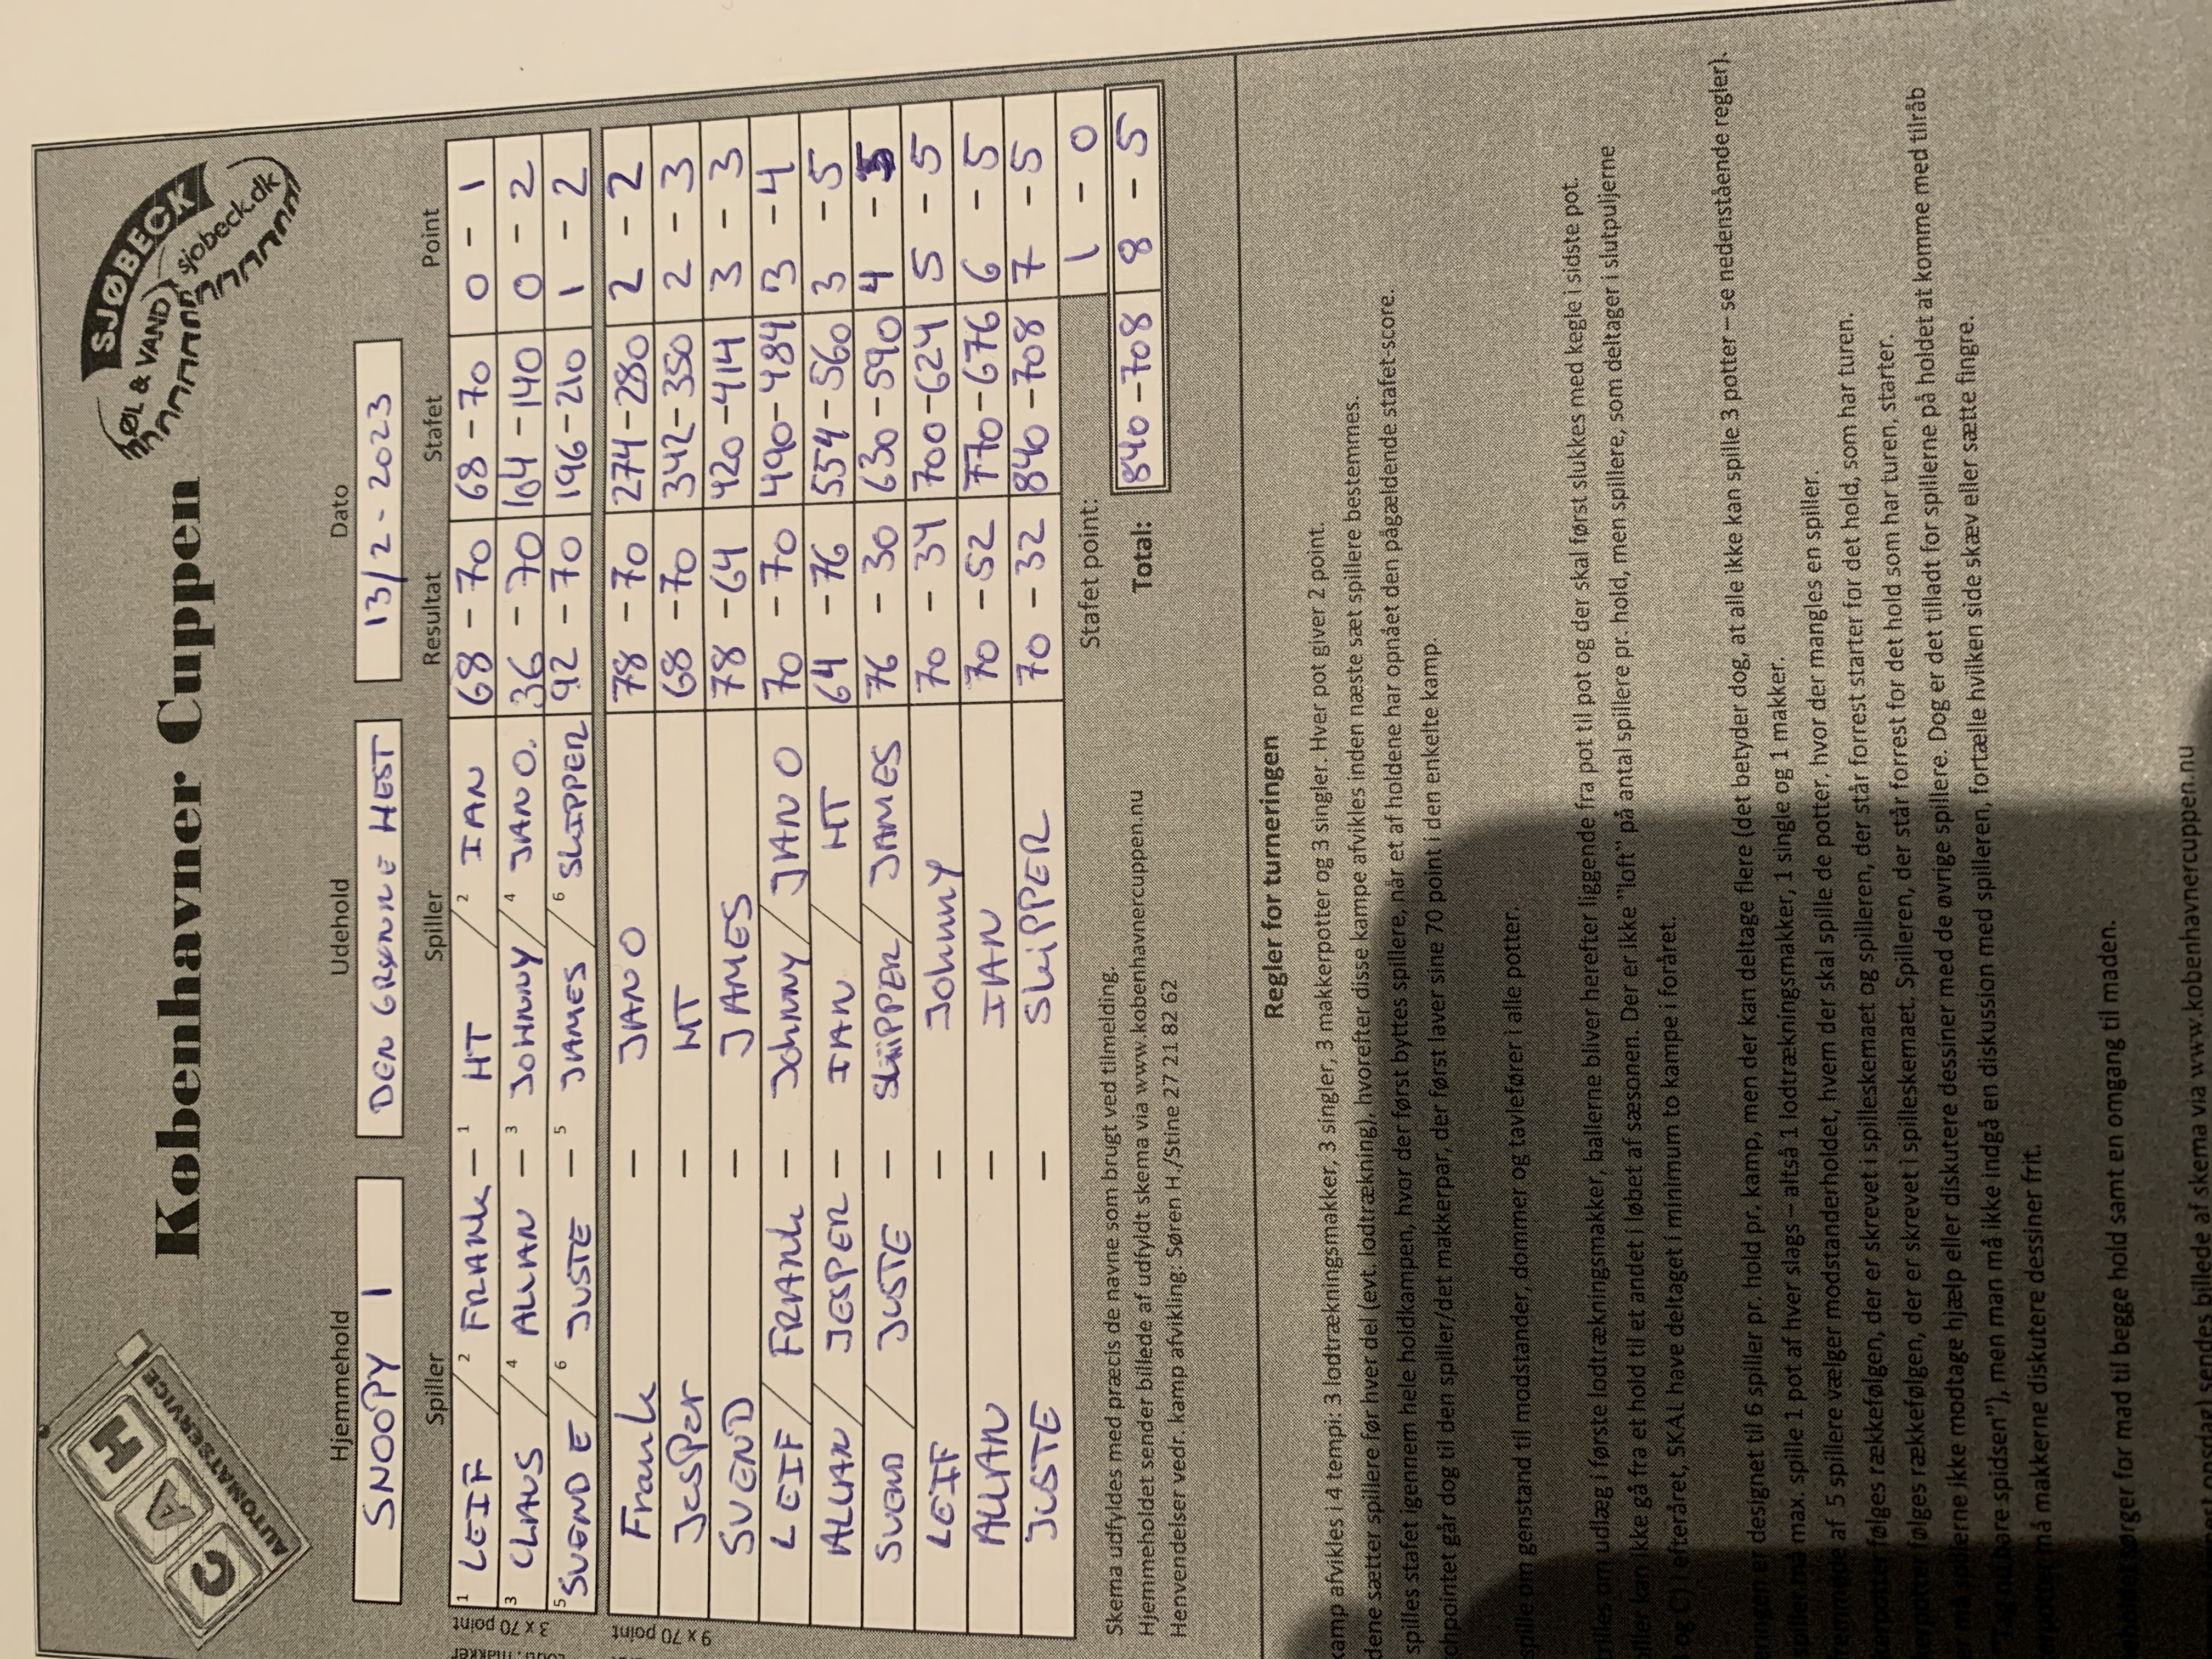 CAH
AUTOMATSERVICE
Københavner Cuppen
SJØBECK
ØL & VAND
sjobeck.dk
Hjemmehold Udehold Dato
SNOOPY 1 DEN GRØNNE HEST 13/2-2023
Spiller Spiller Resultat Stafet Point
3 x 70 point
1 LEIF / 2 FRANK - 1 HT / 2 IAN 68 - 70 68 - 70 0 - 1
3 CLAUS / 4 ALLAN - 3 JOHNNY / 4 JAN O. 36 - 70 104 - 140 0 - 2
5 SVEND E / 6 JUSTE - 5 JAMES / 6 SKIPPER 92 - 70 196 - 210 1 - 2
9 x 70 point
Frank - JAN O 78 - 70 274 - 280 2 - 2
JesPer - HT 68 - 70 342 - 350 2 - 3
SVEND - JAMES 78 - 64 420 - 414 3 - 3
LEIF / FRANK - JOHNNY / JAN O 70 - 70 490 - 484 3 - 4
ALLAN / JESPER - IAN / HT 64 - 76 554 - 560 3 - 5
SVEND / JUSTE - SKIPPER / JAMES 76 - 30 630 - 590 4 - 5
LEIF - JOHNNY 70 - 34 700 - 624 5 - 5
ALLAN - IAN 70 - 52 770 - 676 6 - 5
JUSTE - SKIPPER 70 - 32 840 - 708 7 - 5
Stafet point: 1 - 0
Total: 840 - 708 8 - 5
Skema udfyldes med præcis de navne som brugt ved tilmelding.
Hjemmeholdet sender billede af udfyldt skema via www.kobenhavnercuppen.nu
Henvendelser vedr. kamp afvikling: Søren H./Stine 27 21 82 62
Regler for turneringen
kamp afvikles i 4 tempi: 3 lodtrækningsmakker, 3 singler, 3 makkerpotter og 3 singler. Hver pot giver 2 point.
dene sætter spillere før hver del (evt. lodtrækning), hvorefter disse kampe afvikles inden næste sæt spillere bestemmes.
spilles stafet igennem hele holdkampen, hvor der først byttes spillere, når et af holdene har opnået den pågældende stafet-score.
chpointet går dog til den spiller/det makkerpar, der først laver sine 70 point i den enkelte kamp.
spille om genstand til modstander, dommer og tavlefører i alle potter.
rilles om udlæg i første lodtrækningsmakker, ballerne bliver herefter liggende fra pot til pot og der skal først slukkes med kegle i sidste pot.
iller kan ikke gå fra et hold til et andet i løbet af sæsonen. Der er ikke "loft" på antal spillere pr. hold, men spillere, som deltager i slutpuljerne
og C) i efteråret, SKAL have deltaget i minimum to kampe i foråret.
eringen er designet til 6 spiller pr. hold pr. kamp, men der kan deltage flere (det betyder dog, at alle ikke kan spille 3 potter – se nedenstående regler).
må max. spille 1 pot af hver slags – altså 1 lodtrækningsmakker, 1 single og 1 makker.
af 5 spillere vælger modstanderholdet, hvem der skal spille de potter, hvor der mangles en spiller.
følges rækkefølgen, der er skrevet i spilleskemaet og spilleren, der står forrest starter for det hold, som har turen.
følges rækkefølgen, der er skrevet i spilleskemaet. Spilleren, der står forrest for det hold som har turen, starter.
erne ikke modtage hjælp eller diskutere dessiner med de øvrige spillere. Dog er det tilladt for spillerne på holdet at komme med tilråb
bare spidsen"), men man må ikke indgå en diskussion med spilleren, fortælle hvilken side skæv eller sætte fingre.
må makkerne diskutere dessiner frit.
ørger for mad til begge hold samt en omgang til maden.
sendes billede af skema via www.kobenhavnercuppen.nu